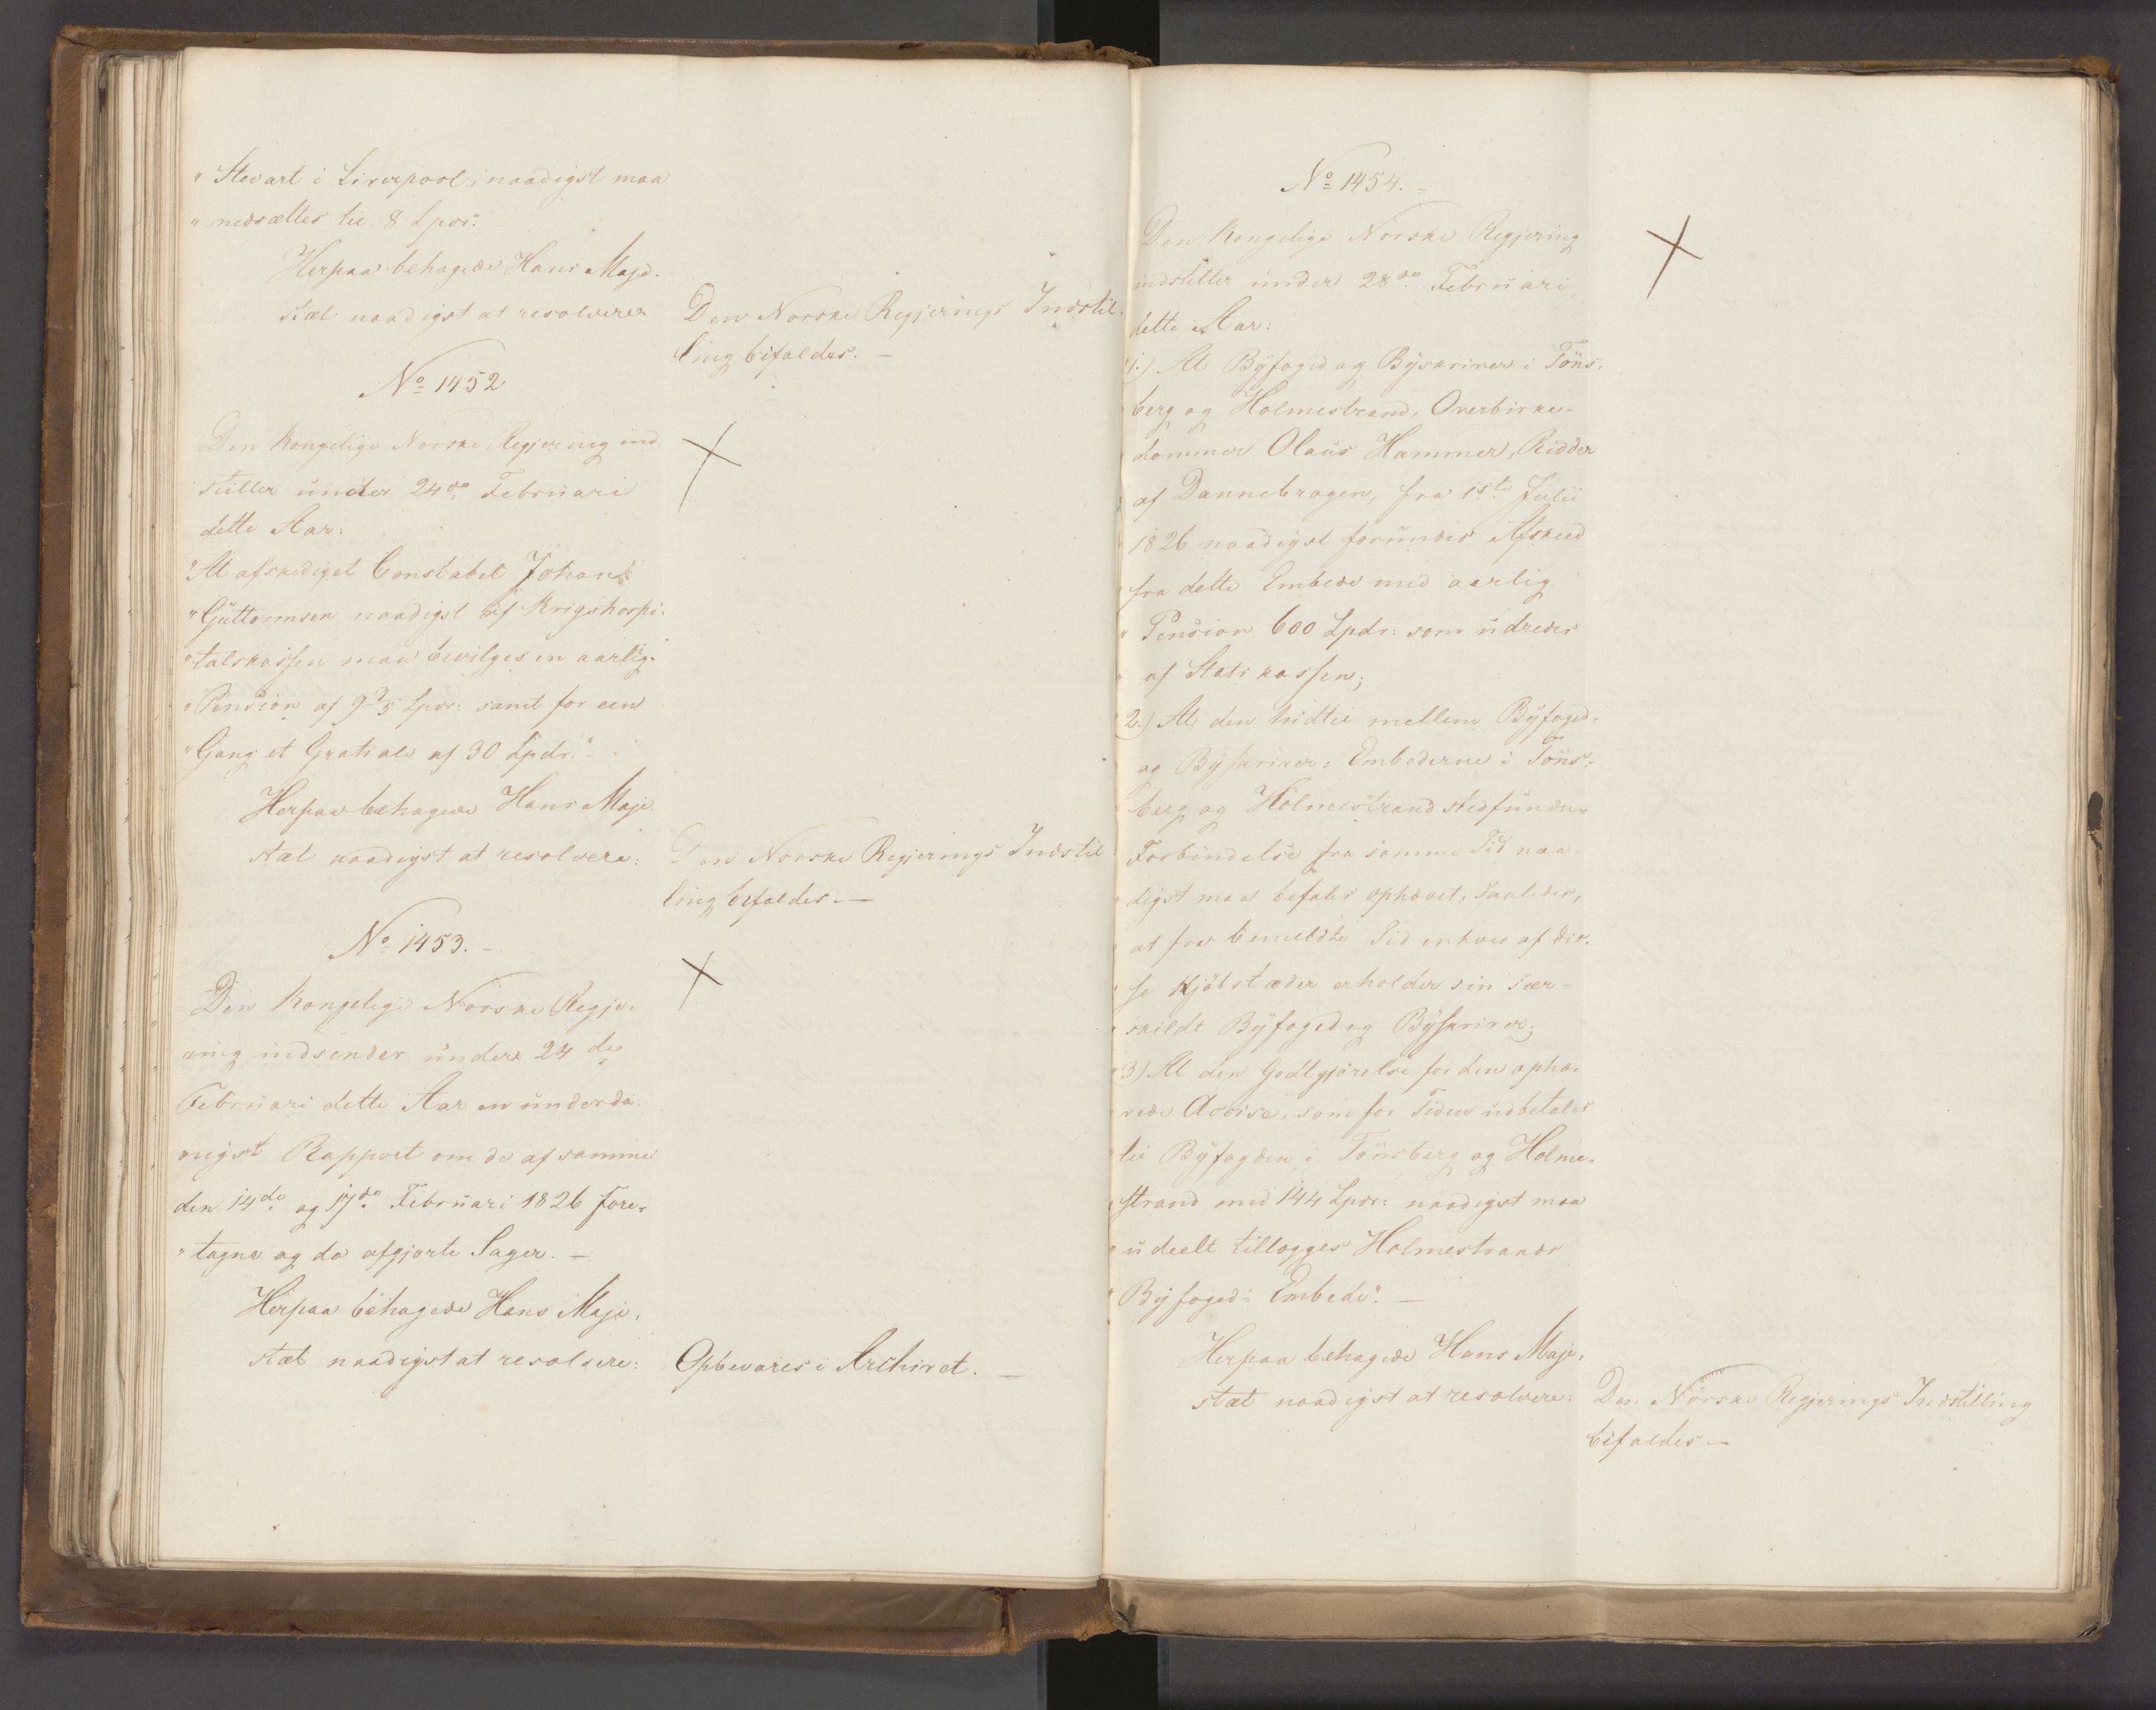 " Stevart i Liverpool, naadigst maa
" nedsættes til 8 Spdr:"
Herpaa behagede Hans Maje-
stæt naadigst at resolvere:
Den Norske Regjerings Indstil-
ling bifaldes. —
No 1452
Den Kongelige Norske Regjering ind
stiller under 24de Februari
dette Aar:
"At afskediget Constabel Johan
"Guttormsen naadigst af Krigshospi-
"talskassen maa bevilges en aarlig
"Pension af 9 3/5 Spdr: samt for een
"Gang et Gratiale af 30 Spdr."
Herpaa behagede Hans Maje
stæt naadigst at resolvere:
Den Norske Regjerings Indstil
ling bifaldes. —
No 1453. —
Den Kongelige Norske Regje-
ring indsender under 24de
Februari dette Aar en underda-
nigst Rapport om de af samme
den 14de og 17de Februari 1826 fore-
"tagne og da afgjorte Sager. —
Herpaa behagede Hans Maje-
stæt naadigst at resolvere:
Opbevares i Archivet. —
No 1454. —
Den Kongelige Norske Regjering
indstiller under 28de Februari
dette Aar:
"1.) At Byfoged og Byskriver i Töns-
berg og Holmestrand, Overbirke-
dommer Olaus Hammer, Ridder
af Dannebrogen, fra 1ste Julii
1826 naadigst forundes Afskeed
fra dette Embede med aarlig
" Pension 600 Spdr: som udredes
" af Statskassen;
2.) At den hidtil mellem Byfoged-
og Byskriver-Embederne i Töns-
berg og Holmestrand stedfundne
Forbindelse fra samme Tid naa-
"digst maa befales ophævet, saaledes,
" at fra bemeldte Tid enhver af dis-
" se Kjöbstæder erholder sin sær-
" skildt Byfoged og Byskriver;
"3) At den Godtgjörelse for den ophæ-
vede Accise, som for Tiden udbetales
" til Byfogden i Tönsberg og Holme-
" strand med 144 Spdr: naadigst maa
" udeelt tillægges Holmestrands
" Byfoged-Embede". —
Herpaa behagede Hans Maje-
stæt naadigst at resolvere:
Den Norske Regjerings Indstilling
bifaldes —